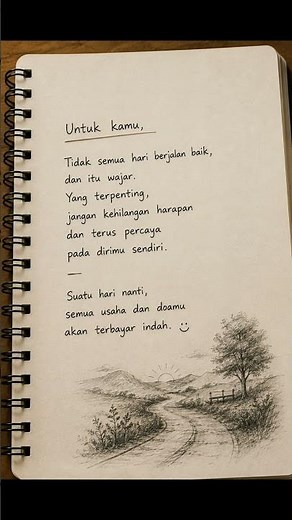 Untuk kamu,
Tidak semua hari berjalan baik,
dan itu wajar.
Yang terpenting,
jangan kehilangan harapan
dan terus percaya
pada dirimu sendiri.
—
Suatu hari nanti,
semua usaha dan doamu
akan terbayar indah. ☺